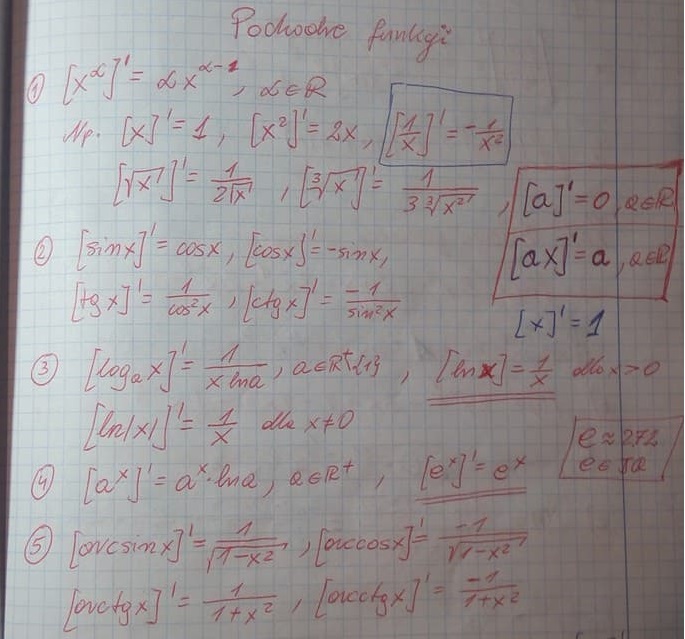 Pochodne funkcji
① [x^α]' = αx^(α-1), α∈R
Np. [x]' = 1, [x²]' = 2x, [1/x]' = -1/x²
[√x]' = 1/(2√x), [∛x]' = 1/(3∛x²), [a]' = 0, a∈R
② [sinx]' = cosx, [cosx]' = -sinx, [ax]' = a, a∈R
[tgx]' = 1/cos²x, [ctgx]' = -1/sin²x
[x]' = 1
③ [logₐx]' = 1/(x lna), a∈R⁺\{1}, [lnx] = 1/x dla x>0
[ln|x|]' = 1/x dla x≠0
e≈2,72
④ [aˣ]' = aˣ·lna, a∈R⁺, [eˣ]' = eˣ
⑤ [arcsinx]' = 1/√(1-x²), [arccosx]' = -1/√(1-x²)
[arctgx]' = 1/(1+x²), [arcctgx]' = -1/(1+x²)